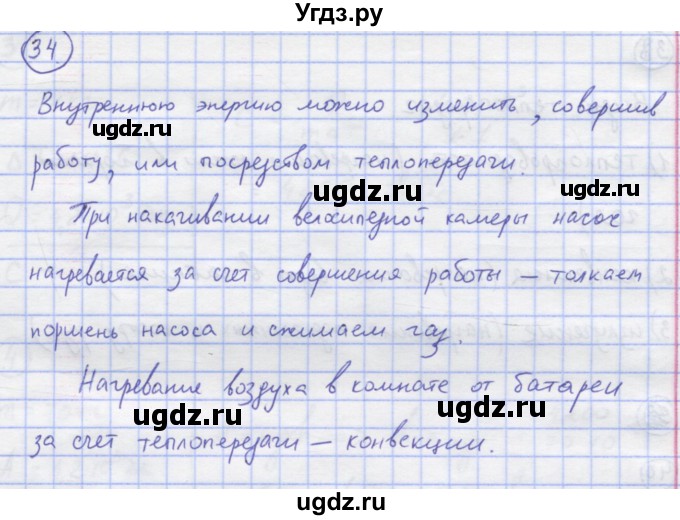 Угдз.ру
34
Внутреннюю энергию можно изменить, совершив
ugdz.ru
ugdz.ru
работу, или посредством теплопередачи.
ugdz.ru
При накачивании велосипедной камеры насос
ugdz.ru
нагревается за счет совершения работы – толкаем
ugdz.ru
поршень насоса и сжимаем газ.
ugdz.ru
Нагревание воздуха в комнате от батареи
ugdz.ru
ugdz.ru
за счет теплопередачи – конвекции.
ugdz.ru
ugdz.ru